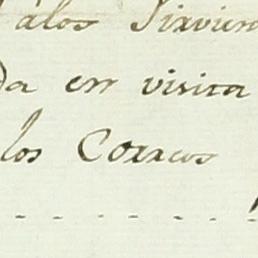 álos Sirvien
da en visita
los Correos